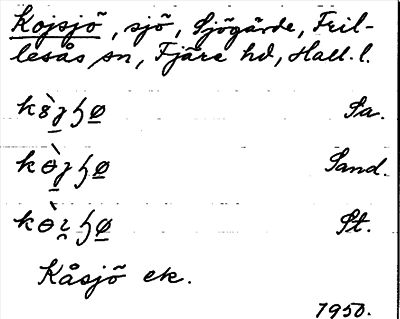 Kojsjö, sjö, Sjögärde, Fril-
lesås sn, Fjäre hd, Hall. l.
Sa.
Sand.
St.
Kåsjö ek.
1950.